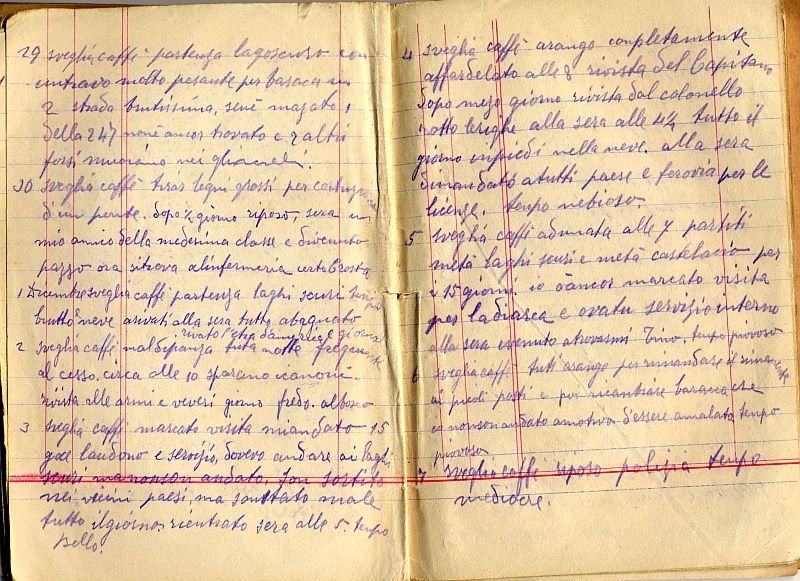 29 sveglia caffè partenza lagoscuro con
un travo molto pesante per baraca in
2 strada brutissima, sené magato 1
della 247 non é ancor trovato e 2 altri
forsi muoiano nei ghiacciai.
30 sveglia caffè tirar legni grossi per costruzione
d'un ponte. dopo ½ giorno riposo, sera un
mio amico della medesima classe e divenuto
pazzo ora sitrova alinfermeria certo Crosta
1 Dicembre sveglia caffè partenza laghi scuri tempo
brutto neve arivati alla sera tutto abagnato
rivato l'otio d'amerlica e giornale
2 sveglia caffè mal dipanza tuta notte
al cesso. circa alle 10 sparano icanoni.
rivista alle armi e viveri giorno fredo.
3 sveglia caffè marcato visita miandato 15
goc laudono e servisio, dovevo andare ai laghi
scuri ma non son andato. Son sortito
nei vicini paesi, ma son stato male
tutto il giorno. rientrato sera alle 5. tempo
bello.
4 sveglia caffè arango completamente
affardelato alle 8 rivista del Capitano
dopo mezo giorno rivista dal colonello
rotto le righe alla sera alle 4¼ tutto il
giorno inpiedi nella neve. alla sera
dimandato a tutti paese e ferovia per le
licenze. tempo nebioso.
5 sveglia caffè adunata alle 7 partiti
metà laghi scuri e metà castelacio per
i 15 giorni io ò ancor marcato visita
per la diarea e ovatu servisio interno
alla sera e venuto atrovarmi Trino. tempo piovoso
6 sveglia caffè tuti arango per rimandare il rimanente
ai picoli posti e poi ricambiare baracca che
io non son andato amotivo d'essere amalato tempo
piovoso
7 sveglia caffè riposo polizia tempo
mediocre.